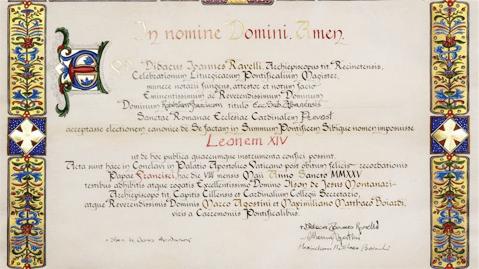 In nomine Domini. Amen.
Ego Didacus Ioannes Ravelli, Archiepiscopus tit. Recinetensis,
Celebrationum Liturgicarum Pontificalium Magister,
munere notarii fungens, attestor et notum facio
Eminentissimum ac Reverendissimum Dominum
Dominum Robertum Franciscum titulo
Sanctae Romanae Ecclesiae Cardinalem Prevost
acceptasse electionem canonice de Se factam in Summum Pontificem Sibique nomen imposuisse
Leonem XIV
ut de hoc publica quaecumque instrumenta confici possint.
Acta sunt haec in Conclavi in Palatio Apostolico Vaticano post obitum felicis recordationis
Papae Francisci, hac die VIII mensis Maii Anno Sancto MMXXV
testibus adhibitis atque rogatis Excellentissimo Domino Ilson de Jesus Montanari
Archiepiscopo tit. Capitis Cillensis et Cardinalium Collegii Secretario,
atque Reverendissimis Dominis Marco Agostini et Maximiliano Matthaeo Boiardi,
viris a Caeremoniis Pontificalibus.